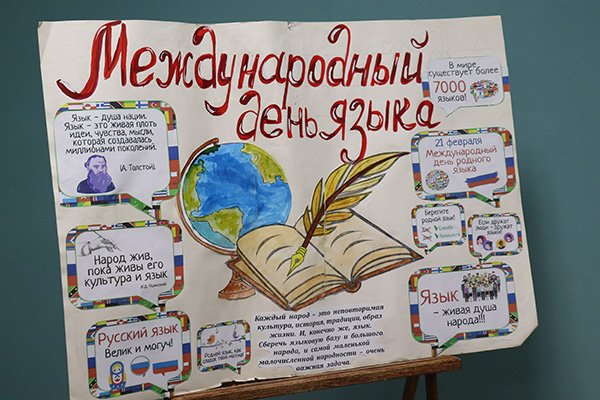 Международный
день языка
В мире
существует более
7000
языков!
Язык – душа нации.
Язык – это живая плоть
идеи, чувства, мысли,
которая создавалась
миллионами поколений.
(А. Толстой).
21 февраля
Международный
день родного
языка
Берегите
родной язык!
Спасибо
Пожалуйста
Если дружат
люди – дружат
языки!
Народ жив,
пока живы его
культура и язык
Язык
– живая душа
народа!!!
Русский язык
Велик и могуч!
Родной язык, как
сладок твой мотив!
Каждый народ - это неповторимая
культура, история, традиции, образ
жизни. И, конечно же, язык.
Сберечь языковую базу и большого
народа, и самой маленькой
малочисленной народности - очень
важная задача.